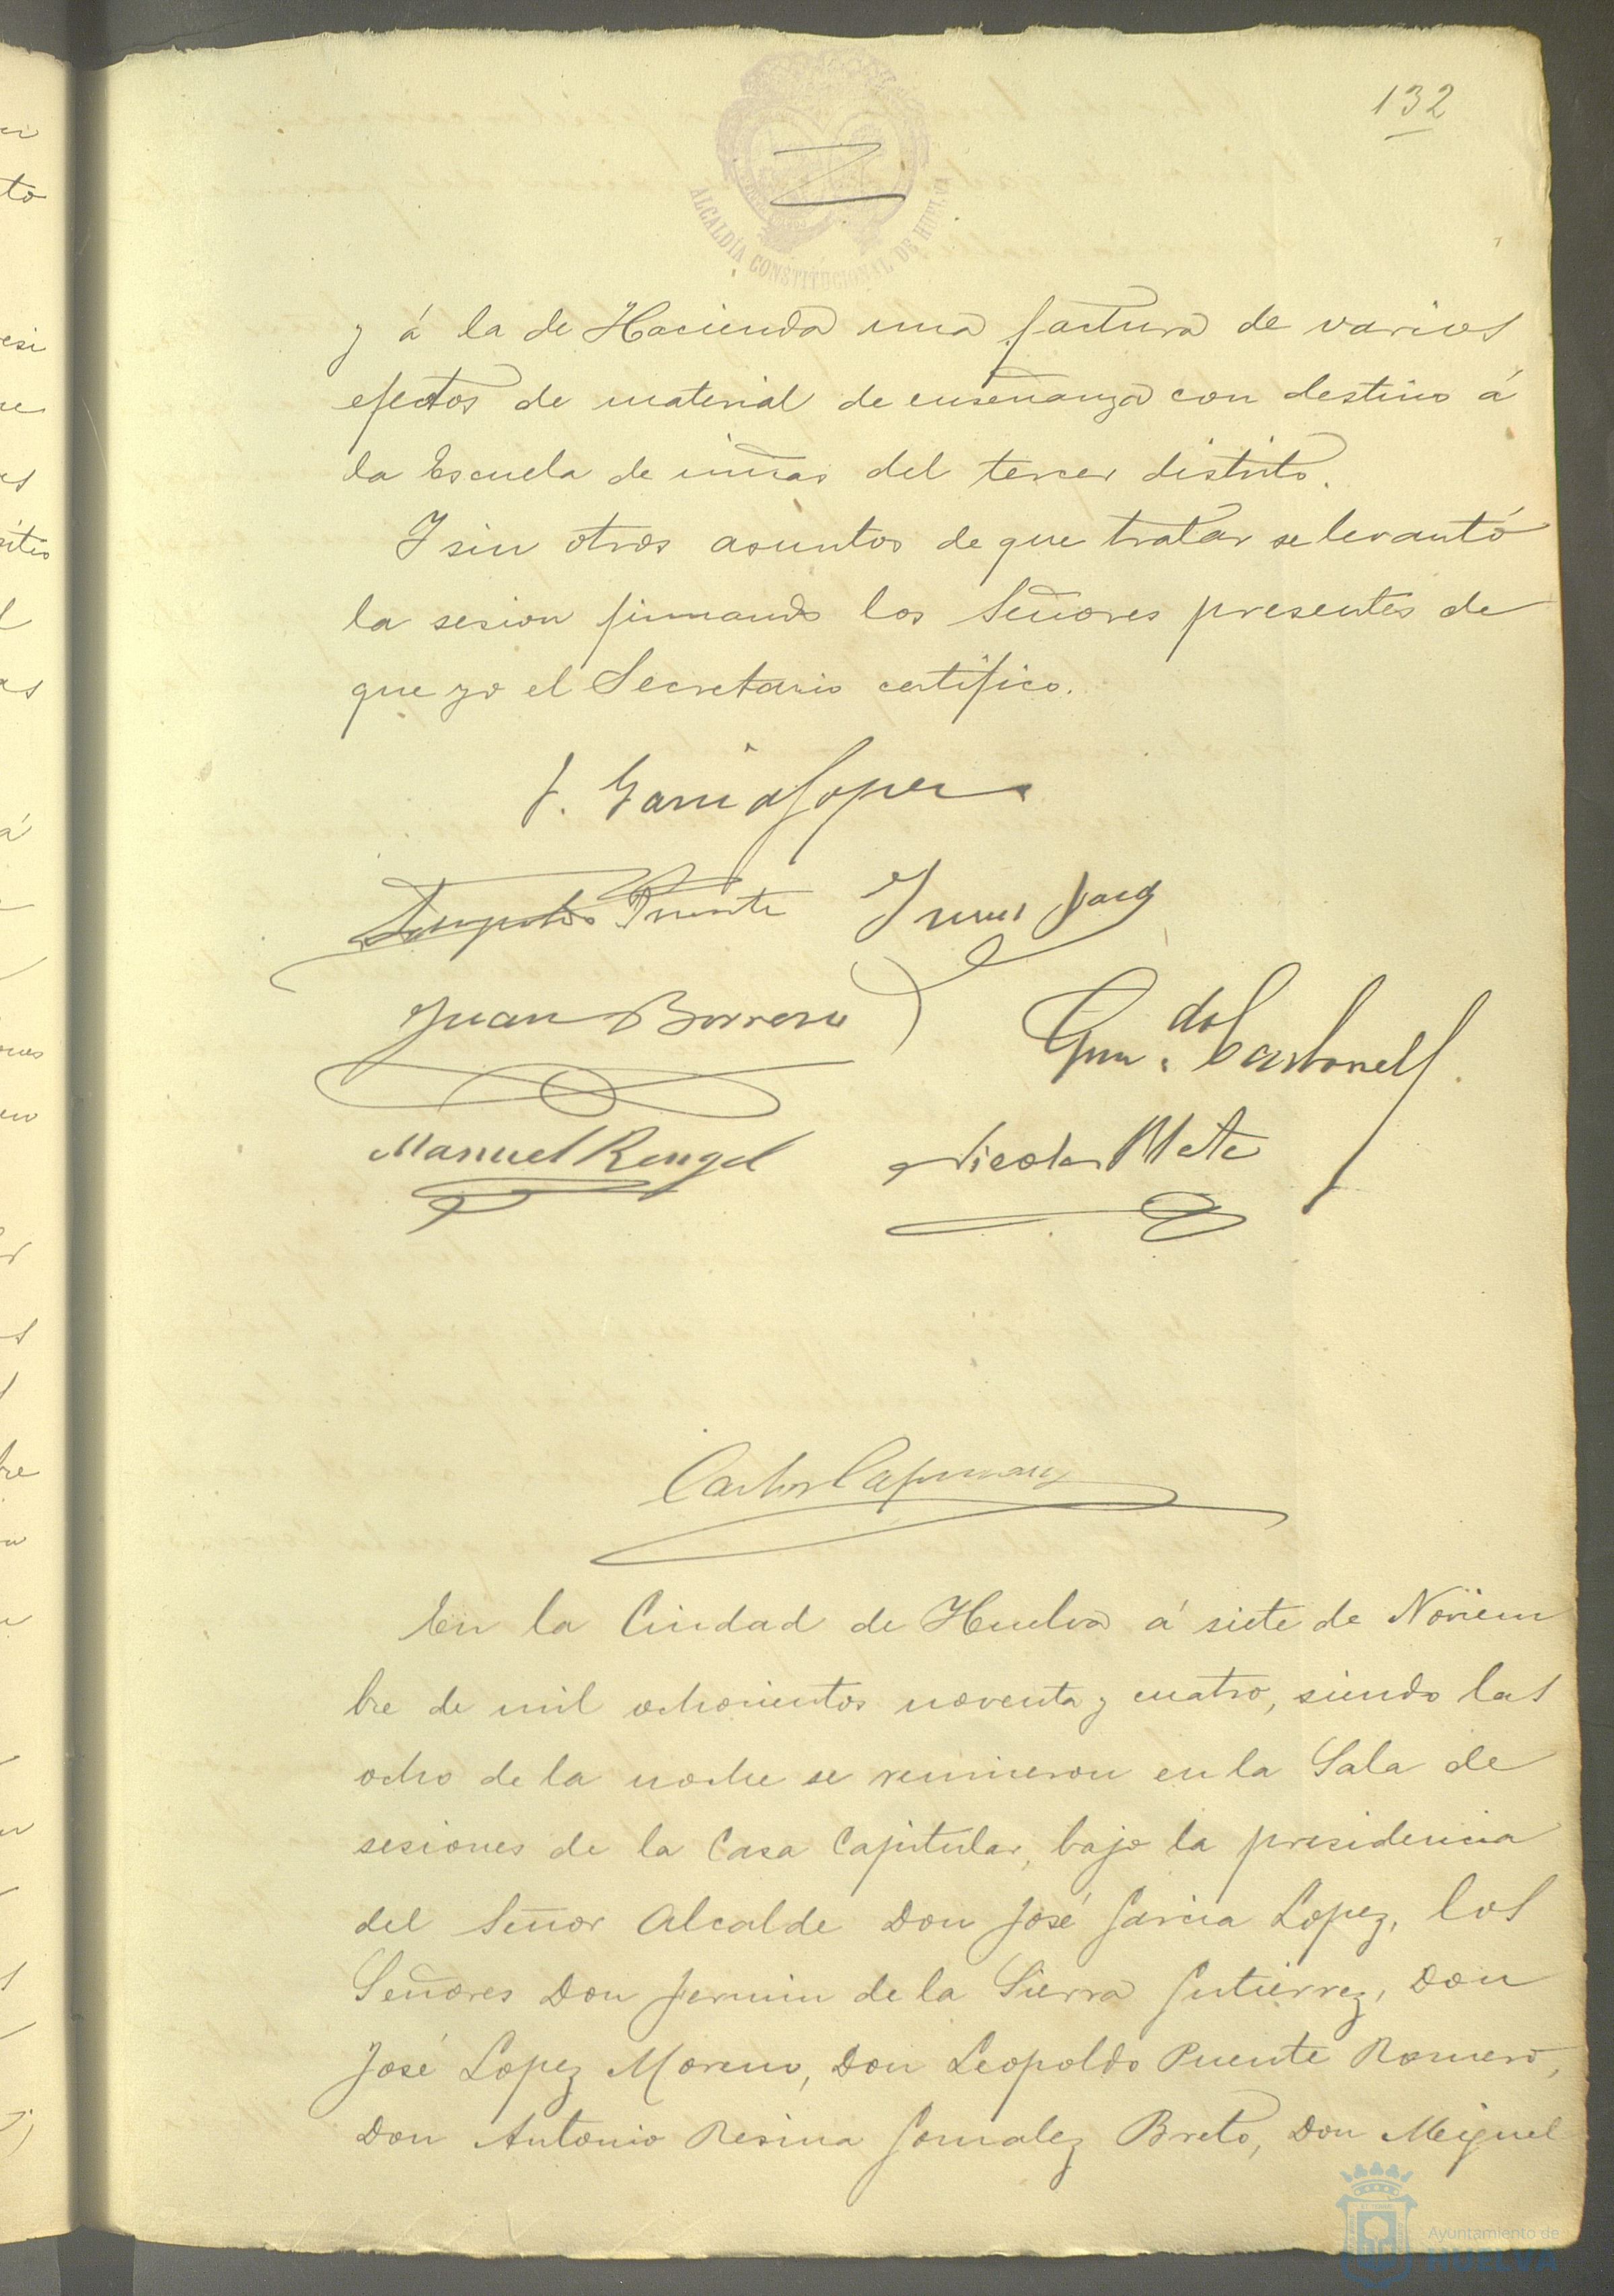 132
ALCALDÍA CONSTITUCIONAL DE HUELVA
y á la de Hacienda una factura de varios
efectos de material de enseñanza con destino á
la Escuela de niñas del tercer distrito.
Y sin otros asuntos de que tratar se levantó
la sesion firmando los Señores presentes de
que yo el Secretario certifico.
J. Garcia Lopez
Leopoldo Puente
Juan Borrero
Gum.do Carbonell
Manuel Rengel
Nicolas Mate
Carlos
En la Ciudad de Huelva á siete de Noviem
bre de mil ochocientos noventa y cuatro, siendo las
ocho de la noche se reunieron en la Sala de
sesiones de la Casa Capitular, bajo la presidencia
del Señor Alcalde Don José Garcia Lopez, los
Señores Don Fermin de la Sierra Gutierrez, Don
José Lopez Moreno, Don Leopoldo Puente Romero,
Don Antonio Resina Gonzalez Breto, Don Miguel
Ayuntamiento de
HUELVA